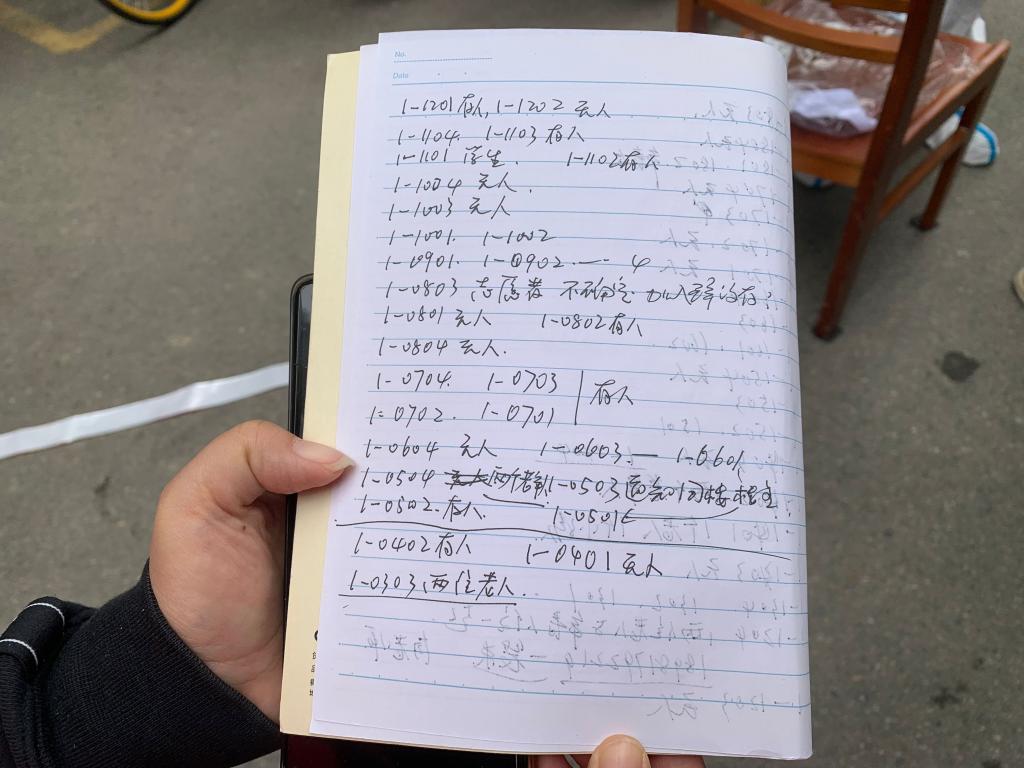 No.
Date
1-1201有人, 1-1202 无人
1-1104. 1-1103 有人
1-1101 学生. 1-1102有人
1-1004 无人.
1-1003 无人
1-1001. 1-1002
1-0901. 1-0902 .— 4
1-0803 志愿者 不确定. 加入群没有?
1-0801 无人 1-0802有人
1-0804 无人.
1-0704. 1-0703 有人
1-0702. 1-0701
1-0604 无人 1-0603.— 1-0601
1-0504 两个老人 1-0503 楼栋主
1-0502.有人. 1-0501
1-0402有人 1-0401无人
1-0303,两位老人.